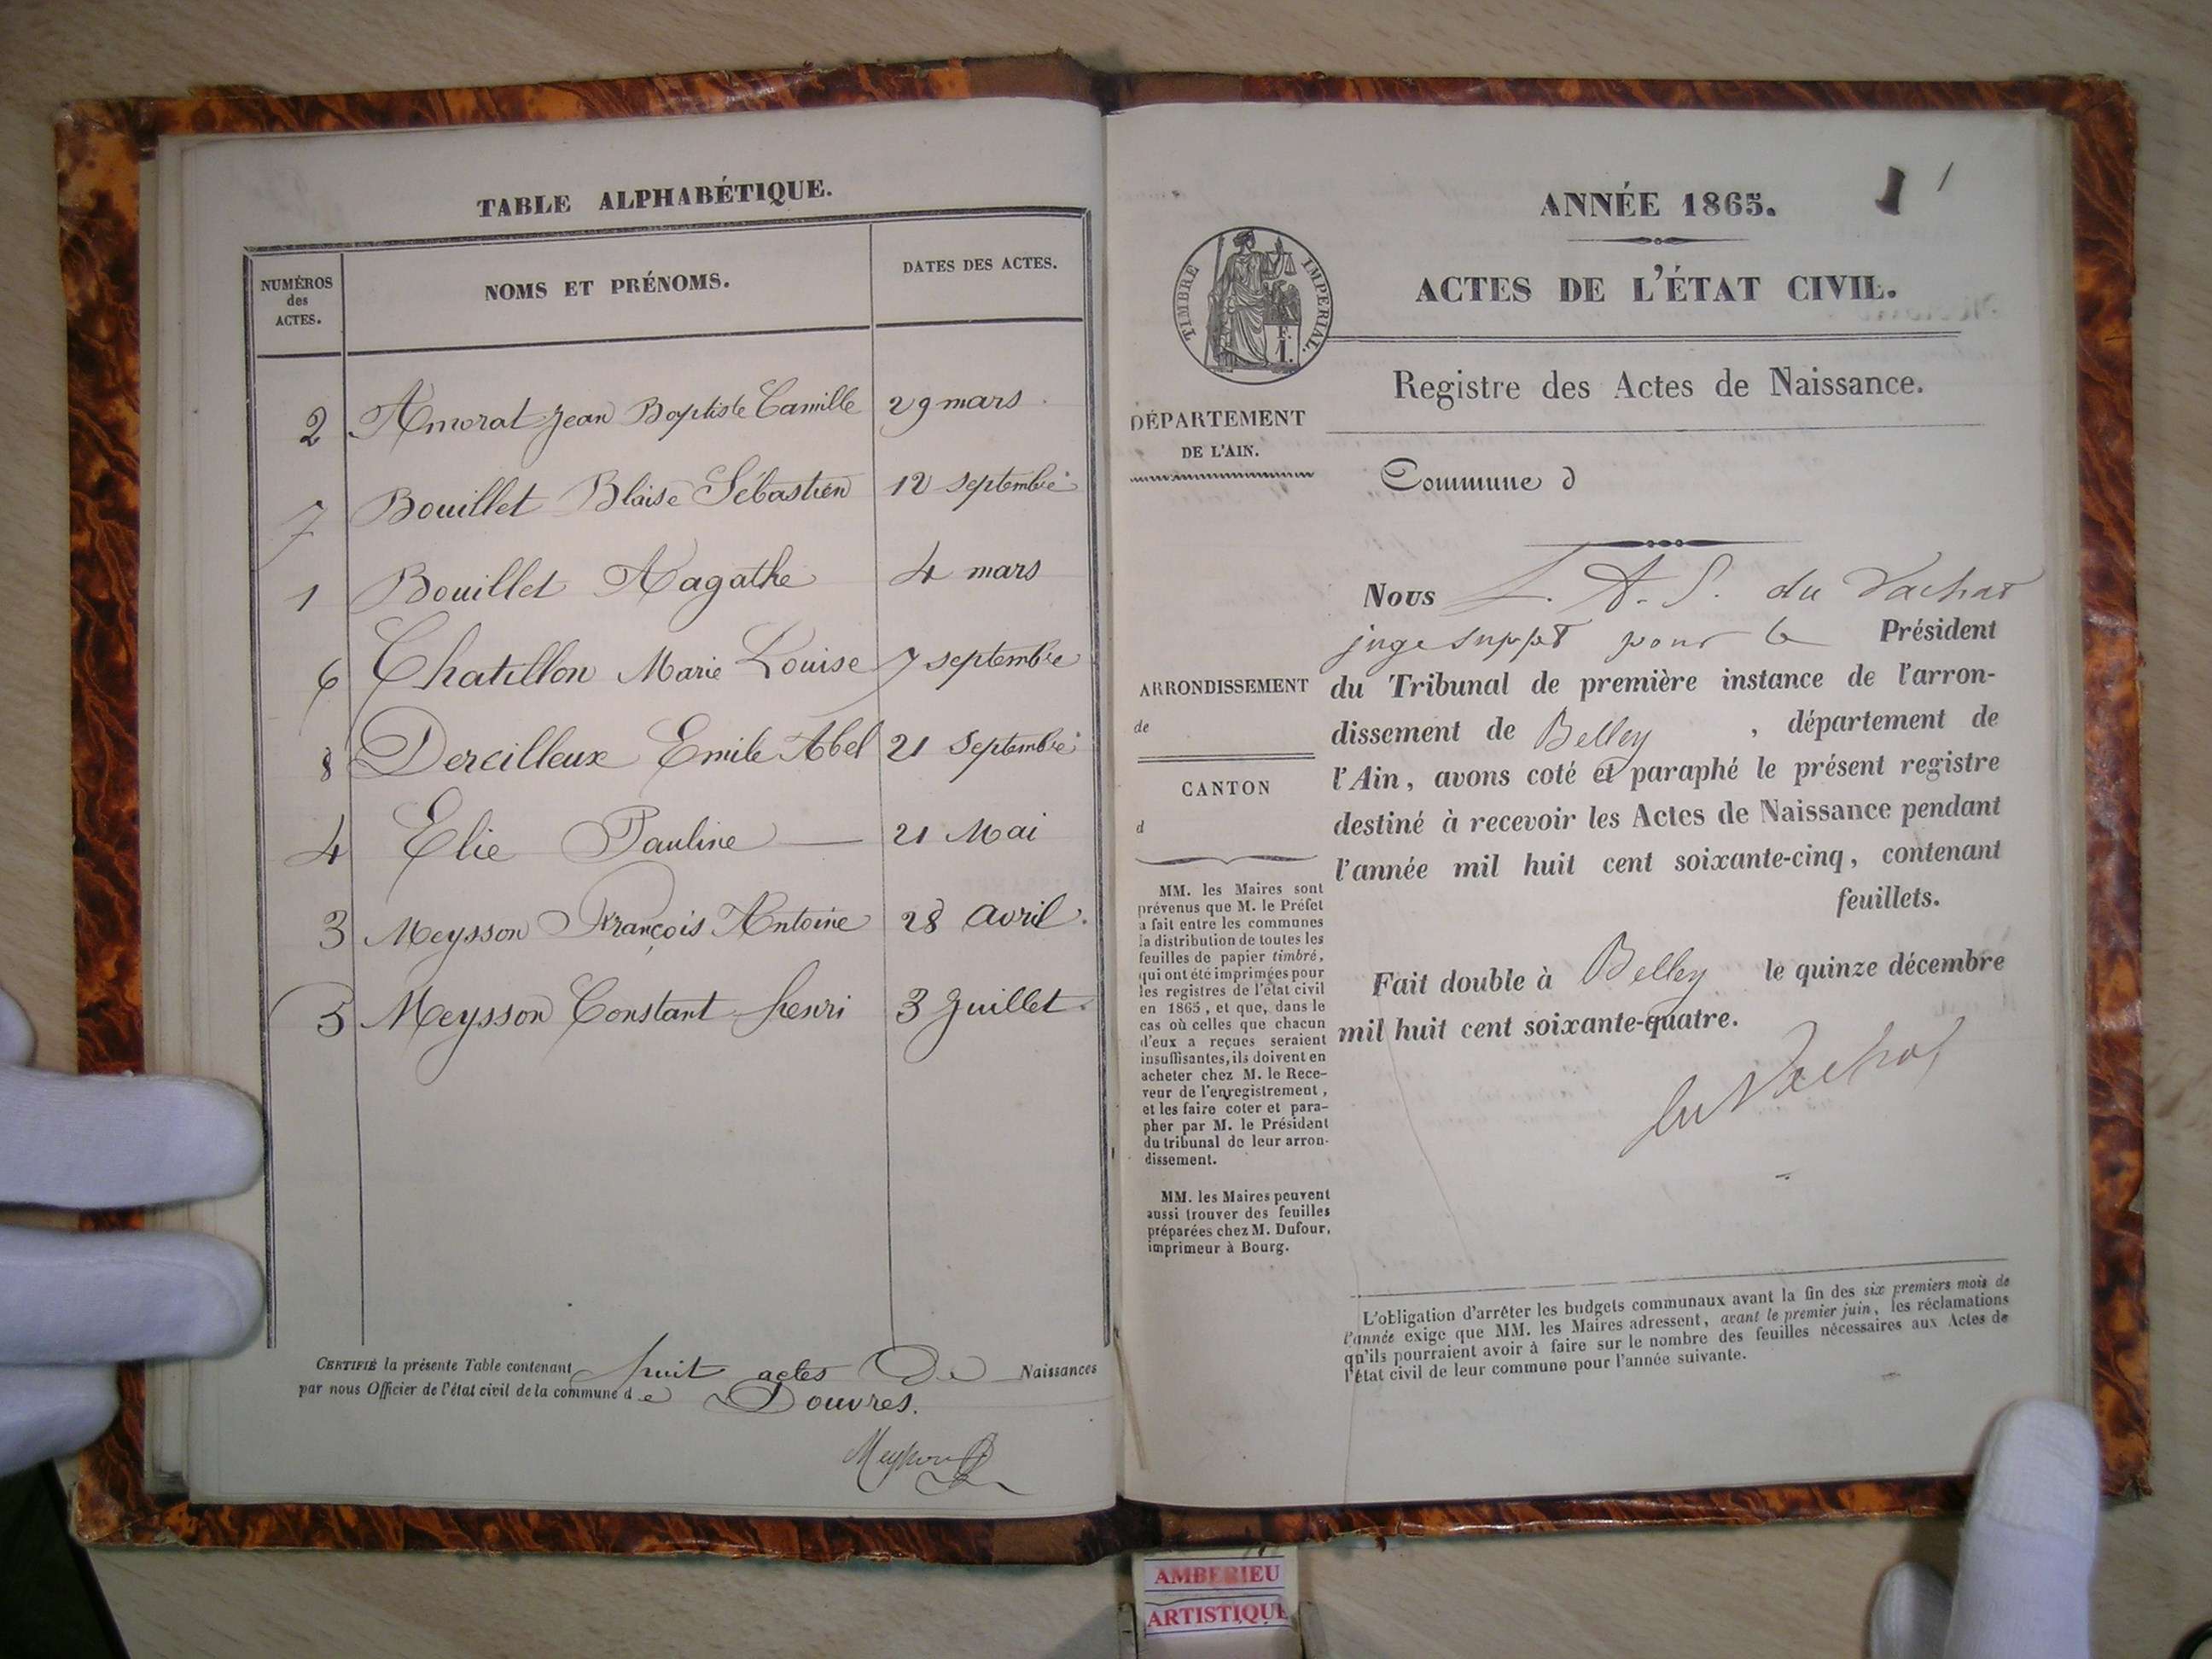 TABLE ALPHABÉTIQUE.
NUMÉROS des ACTES. NOMS ET PRÉNOMS. DATES DES ACTES.
2 Amorat Jean Baptiste Camille 29 mars
7 Bouillet Blaise Sébastien 12 septembre
1 Bouillet Aagathe 4 mars
6 Chatillon Marie Louise 7 septembre
8 Dercilleux Emile Abel 21 Septembre
4 Elie Pauline 21 Mai
3 Meysson François Antoine 28 avril.
5 Meysson Constant henri 3 Juillet.
CERTIFIÉ la présente Table contenant huit actes De Naissances
par nous Officier de l'état civil de la commune de Douvres.
Meysson
ANNÉE 1865. 1
ACTES DE L'ÉTAT CIVIL.
TIMBRE IMPERIAL.
Registre des Actes de Naissance.
DÉPARTEMENT
DE L'AIN.
Commune d
ARRONDISSEMENT
de
CANTON
d
MM. les Maires sont
prévenus que M. le Préfet
a fait entre les communes
la distribution de toutes les
feuilles de papier timbré,
qui ont été imprimées pour
les registres de l'état civil
en 1865, et que, dans le
cas où celles que chacun
d'eux a reçues seraient
insuffisantes, ils doivent en
acheter chez M. le Rece-
veur de l'enregistrement,
et les faire coter et para-
pher par M. le Président
du tribunal de leur arron-
dissement.
MM. les Maires peuvent
aussi trouver des feuilles
préparées chez M. Dufour,
imprimeur à Bourg.
Nous L. A. S. du Vachat
juge suppt pour le Président
du Tribunal de première instance de l'arron-
dissement de Belley, département de
l'Ain, avons coté et paraphé le présent registre
destiné à recevoir les Actes de Naissance pendant
l'année mil huit cent soixante-cinq, contenant
feuillets.
Fait double à Belley le quinze décembre
mil huit cent soixante-quatre.
du Vachat
L'obligation d'arrêter les budgets communaux avant la fin des six premiers mois de
l'année exige que MM. les Maires adressent, avant le premier juin, les réclamations
qu'ils pourraient avoir à faire sur le nombre des feuilles nécessaires aux Actes de
l'état civil de leur commune pour l'année suivante.
AMBERIEU
ARTISTIQUE